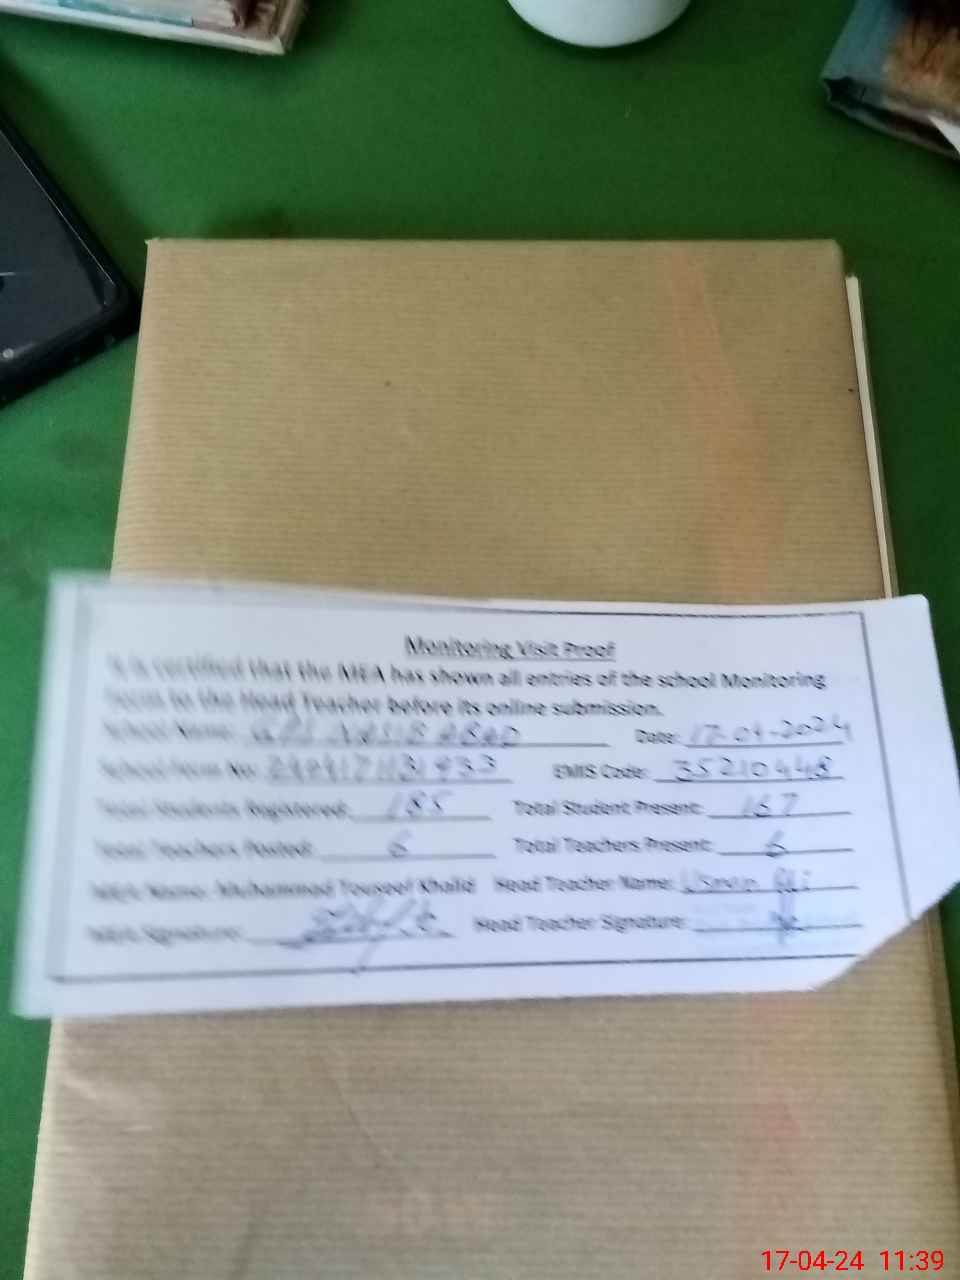 Monitoring Visit Proof
It is certified that the MEA has shown all entries of the school Monitoring
form to the Head Teacher before its online submission.
School Name: GPS NASIR ABAD Date: 17-04-2024
School Form No: EMIS Code: 35210448
Total Students Registered: 185 Total Student Present: 167
Total Teachers Posted: 6 Total Teachers Present: 6
MEA Name: Muhammad Touseef Khalid Head Teacher Name: Usman Ali
MEA Signature: Head Teacher Signature:
17-04-24 11:39